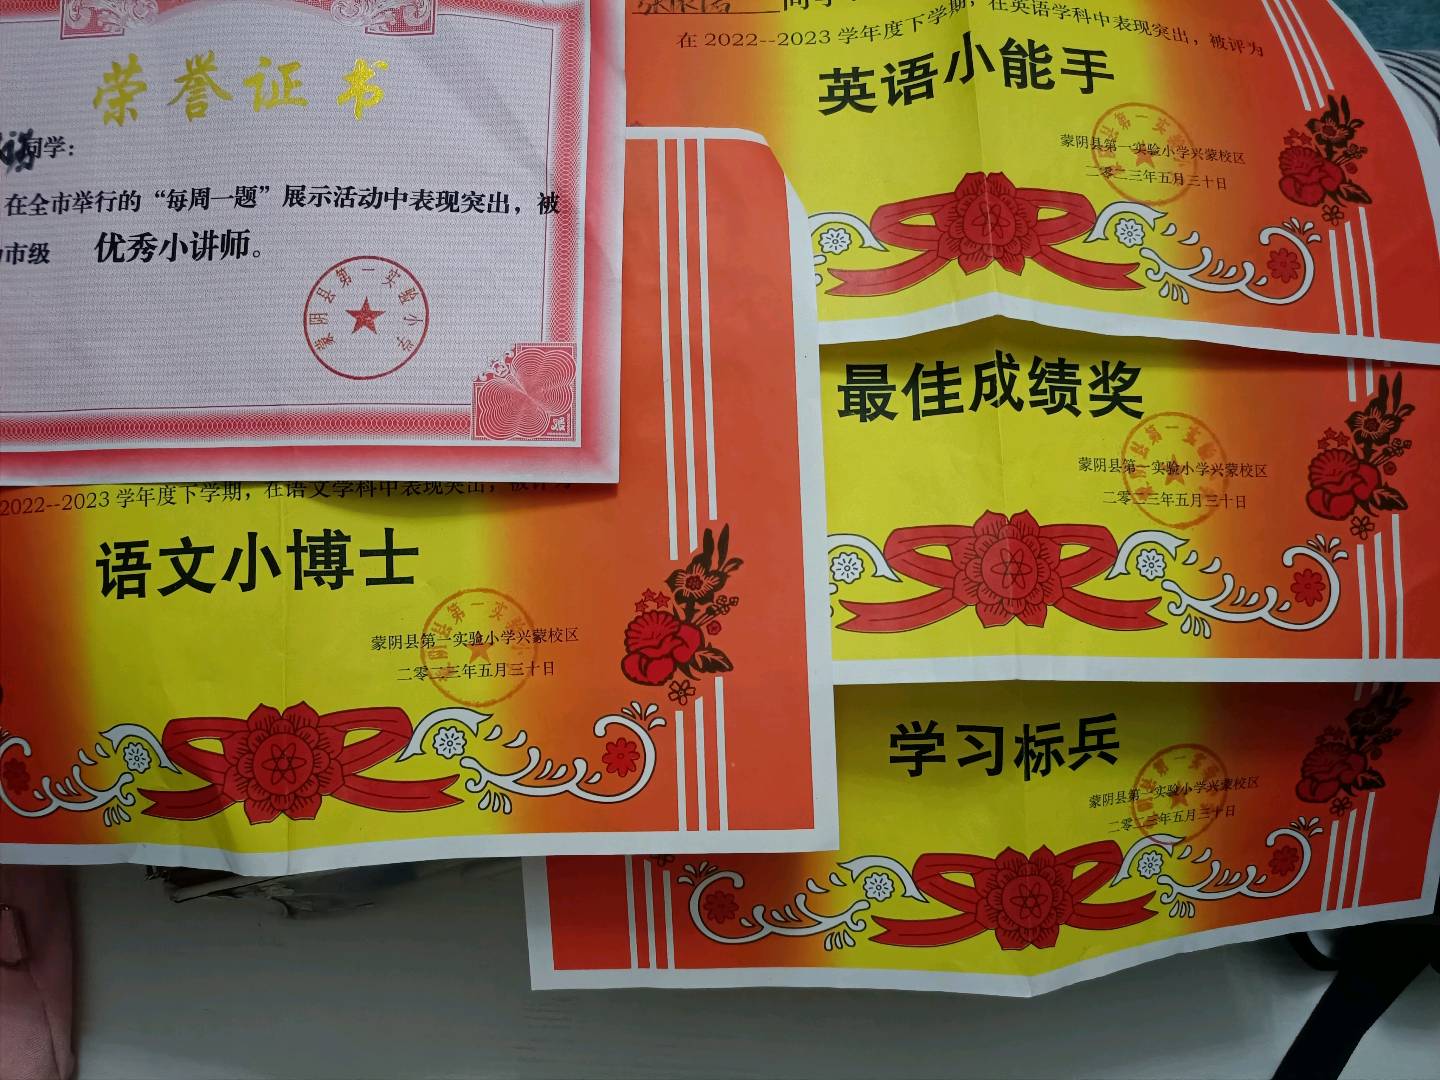 荣誉证书
同学：
在全市举行的“每周一题”展示活动中表现突出，被
市级 优秀小讲师。
蒙阴县第一实验小学
2022--2023 学年度下学期，在语文学科中表现突出，
语文小博士
蒙阴县第一实验小学兴蒙校区
二零二三年五月三十日
同学
在 2022--2023 学年度下学期，在英语学科中表现突出，被评为
英语小能手
蒙阴县第一实验小学兴蒙校区
二零二三年五月三十日
最佳成绩奖
蒙阴县第一实验小学兴蒙校区
二零二三年五月三十日
学习标兵
蒙阴县第一实验小学兴蒙校区
二零二三年五月三十日